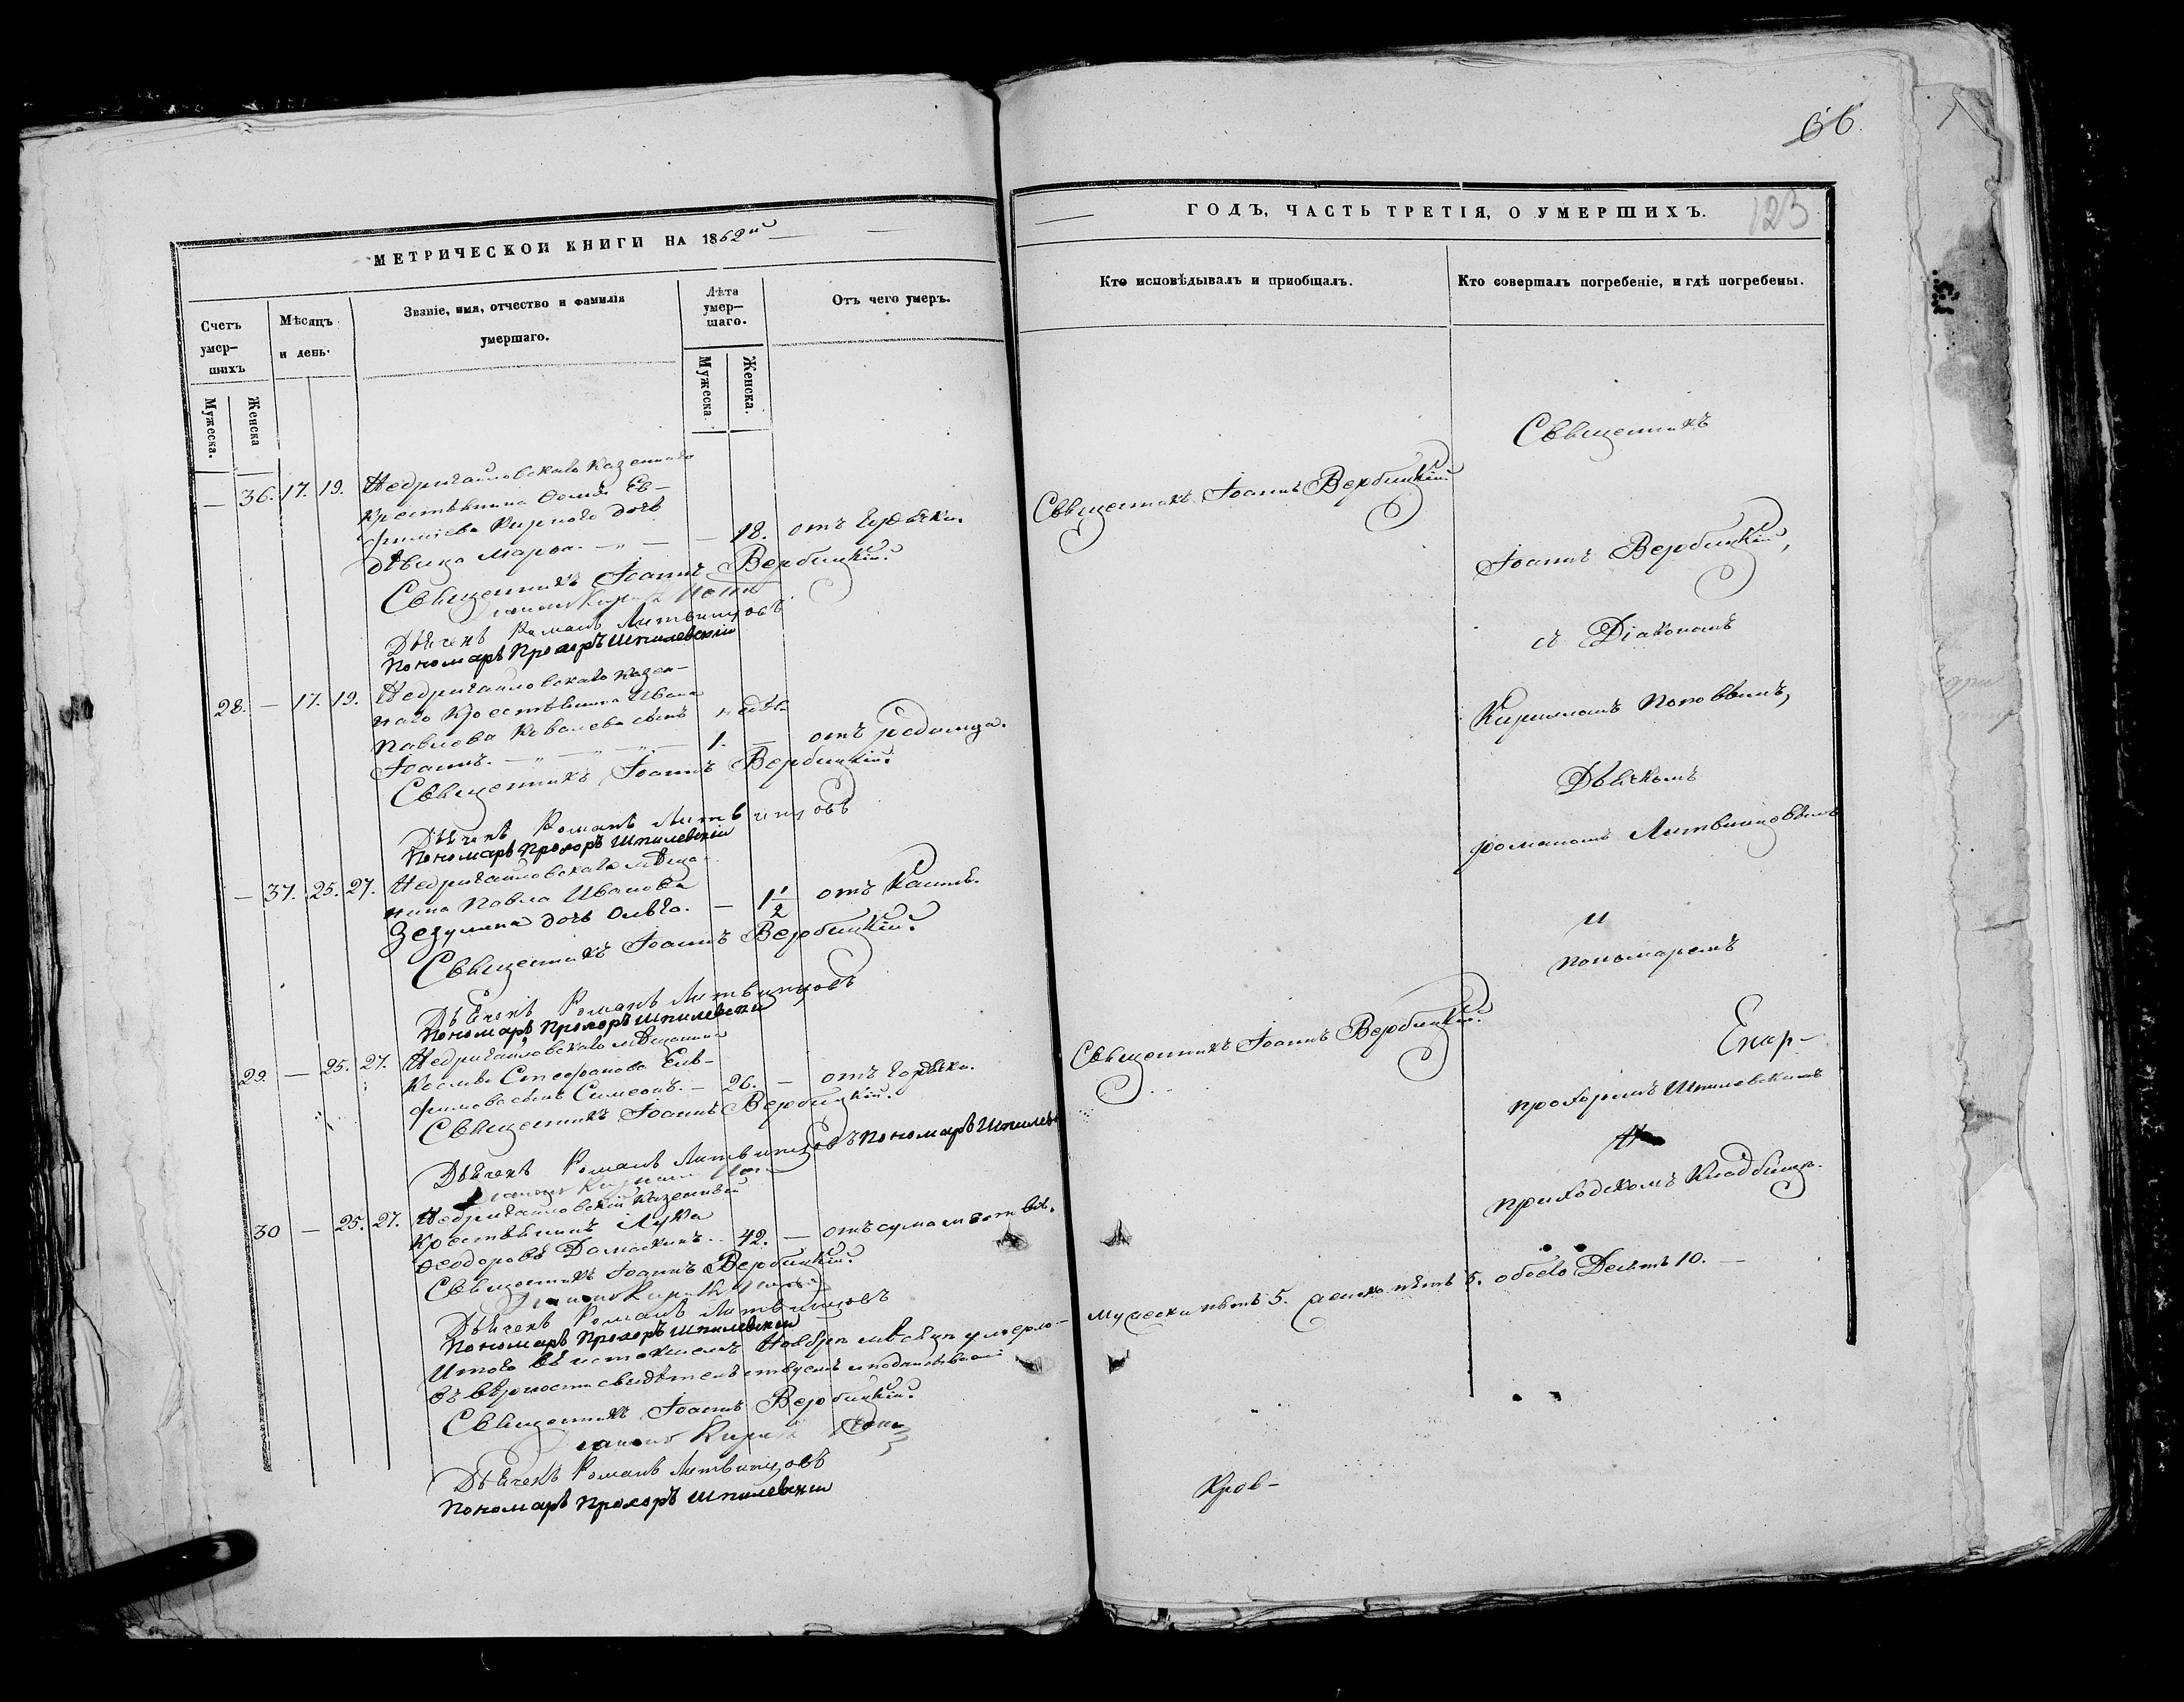 66.
МЕТРИЧЕСКОЙ КНИГИ НА 1862й
Счетъ умер-шихъ
Мужеска.
Женска
Мѣсяцъ и день.
Званіе, имя, отчество и фамилія умершаго.
Лѣта умер-шаго.
Мужеска.
Женска.
Отъ чего умеръ.
— 36. 17. 19. Недригайловскаго казеннаго
крестьянина Ѳомы Ев-
фиміева Кирного дочь
дѣвица Марѳа. — „ — — 18. отъ горячки.
Священникъ Іоаннъ Вербицкій.
Дьячекъ Романъ Литвинцовъ
Пономарь Прохоръ Шпилевскій
28. — 17. 19. Недригайловскаго казен-
наго крестьянина Ивана
Павлова Ковалева сынъ недѣ.
Іоаннъ. — „ — „ — 1. — отъ родимца.
Священникъ Іоаннъ Вербицкій.
Дьячекъ Романъ Литвинцовъ
Пономарь Прохоръ Шпилевскій
— 37. 25. 27. Недригайловскаго мѣща-
нина Павла Иванова
Зезулина дочь Ольга. — 1 1/2 отъ кашля.
Священникъ Іоаннъ Вербицкій.
Дьячекъ Романъ Литвинцовъ
Пономарь Прохоръ Шпилевскій
29. — 25. 27. Недригайловскаго мѣщанина
Космы Стефанова Ев-
фимова сынъ Симеонъ. — 26. — отъ горячки.
Священникъ Іоаннъ Вербицкій.
Дьячекъ Романъ Литвинцовъ Пономарь Шпилев
30 — 25. 27. Недригайловскій казенный
крестьянинъ Лука
Ѳеодоровъ Дамаскинъ. 42. — отъ
Священникъ Іоаннъ Вербицкій.
Дьячекъ Романъ Литвинцовъ
Пономарь Прохоръ Шпилевскій
Итого въ истекшемъ Ноябрѣ мѣсяцѣ умерло —
въ вѣрности свидѣтельствуемъ и подписываемъ
Священникъ Іоаннъ Вербицкій.
Діаконъ Кирилъ
Дьячекъ Романъ Литвинцовъ
Пономарь Прохоръ Шпилевскій
ГОДЪ, ЧАСТЬ ТРЕТІЯ, О УМЕРШИХЪ.
123
Кто исповѣдывалъ и пріобщалъ.
Кто совершалъ погребеніе, и гдѣ погребены.
Священникъ Іоаннъ Вербицкій.
Священникъ Іоаннъ Вербицкій.
Священникъ
Іоаннъ Вербицкій,
съ Діакономъ
Кириломъ Поповымъ,
Дьячкомъ
Романомъ Литвинцовымъ
и
пономаремъ
Прохоромъ Шпилевскимъ
приходскомъ кладбищѣ.
мужеска пять 5. женска пять 5. обоего Десять 10. —